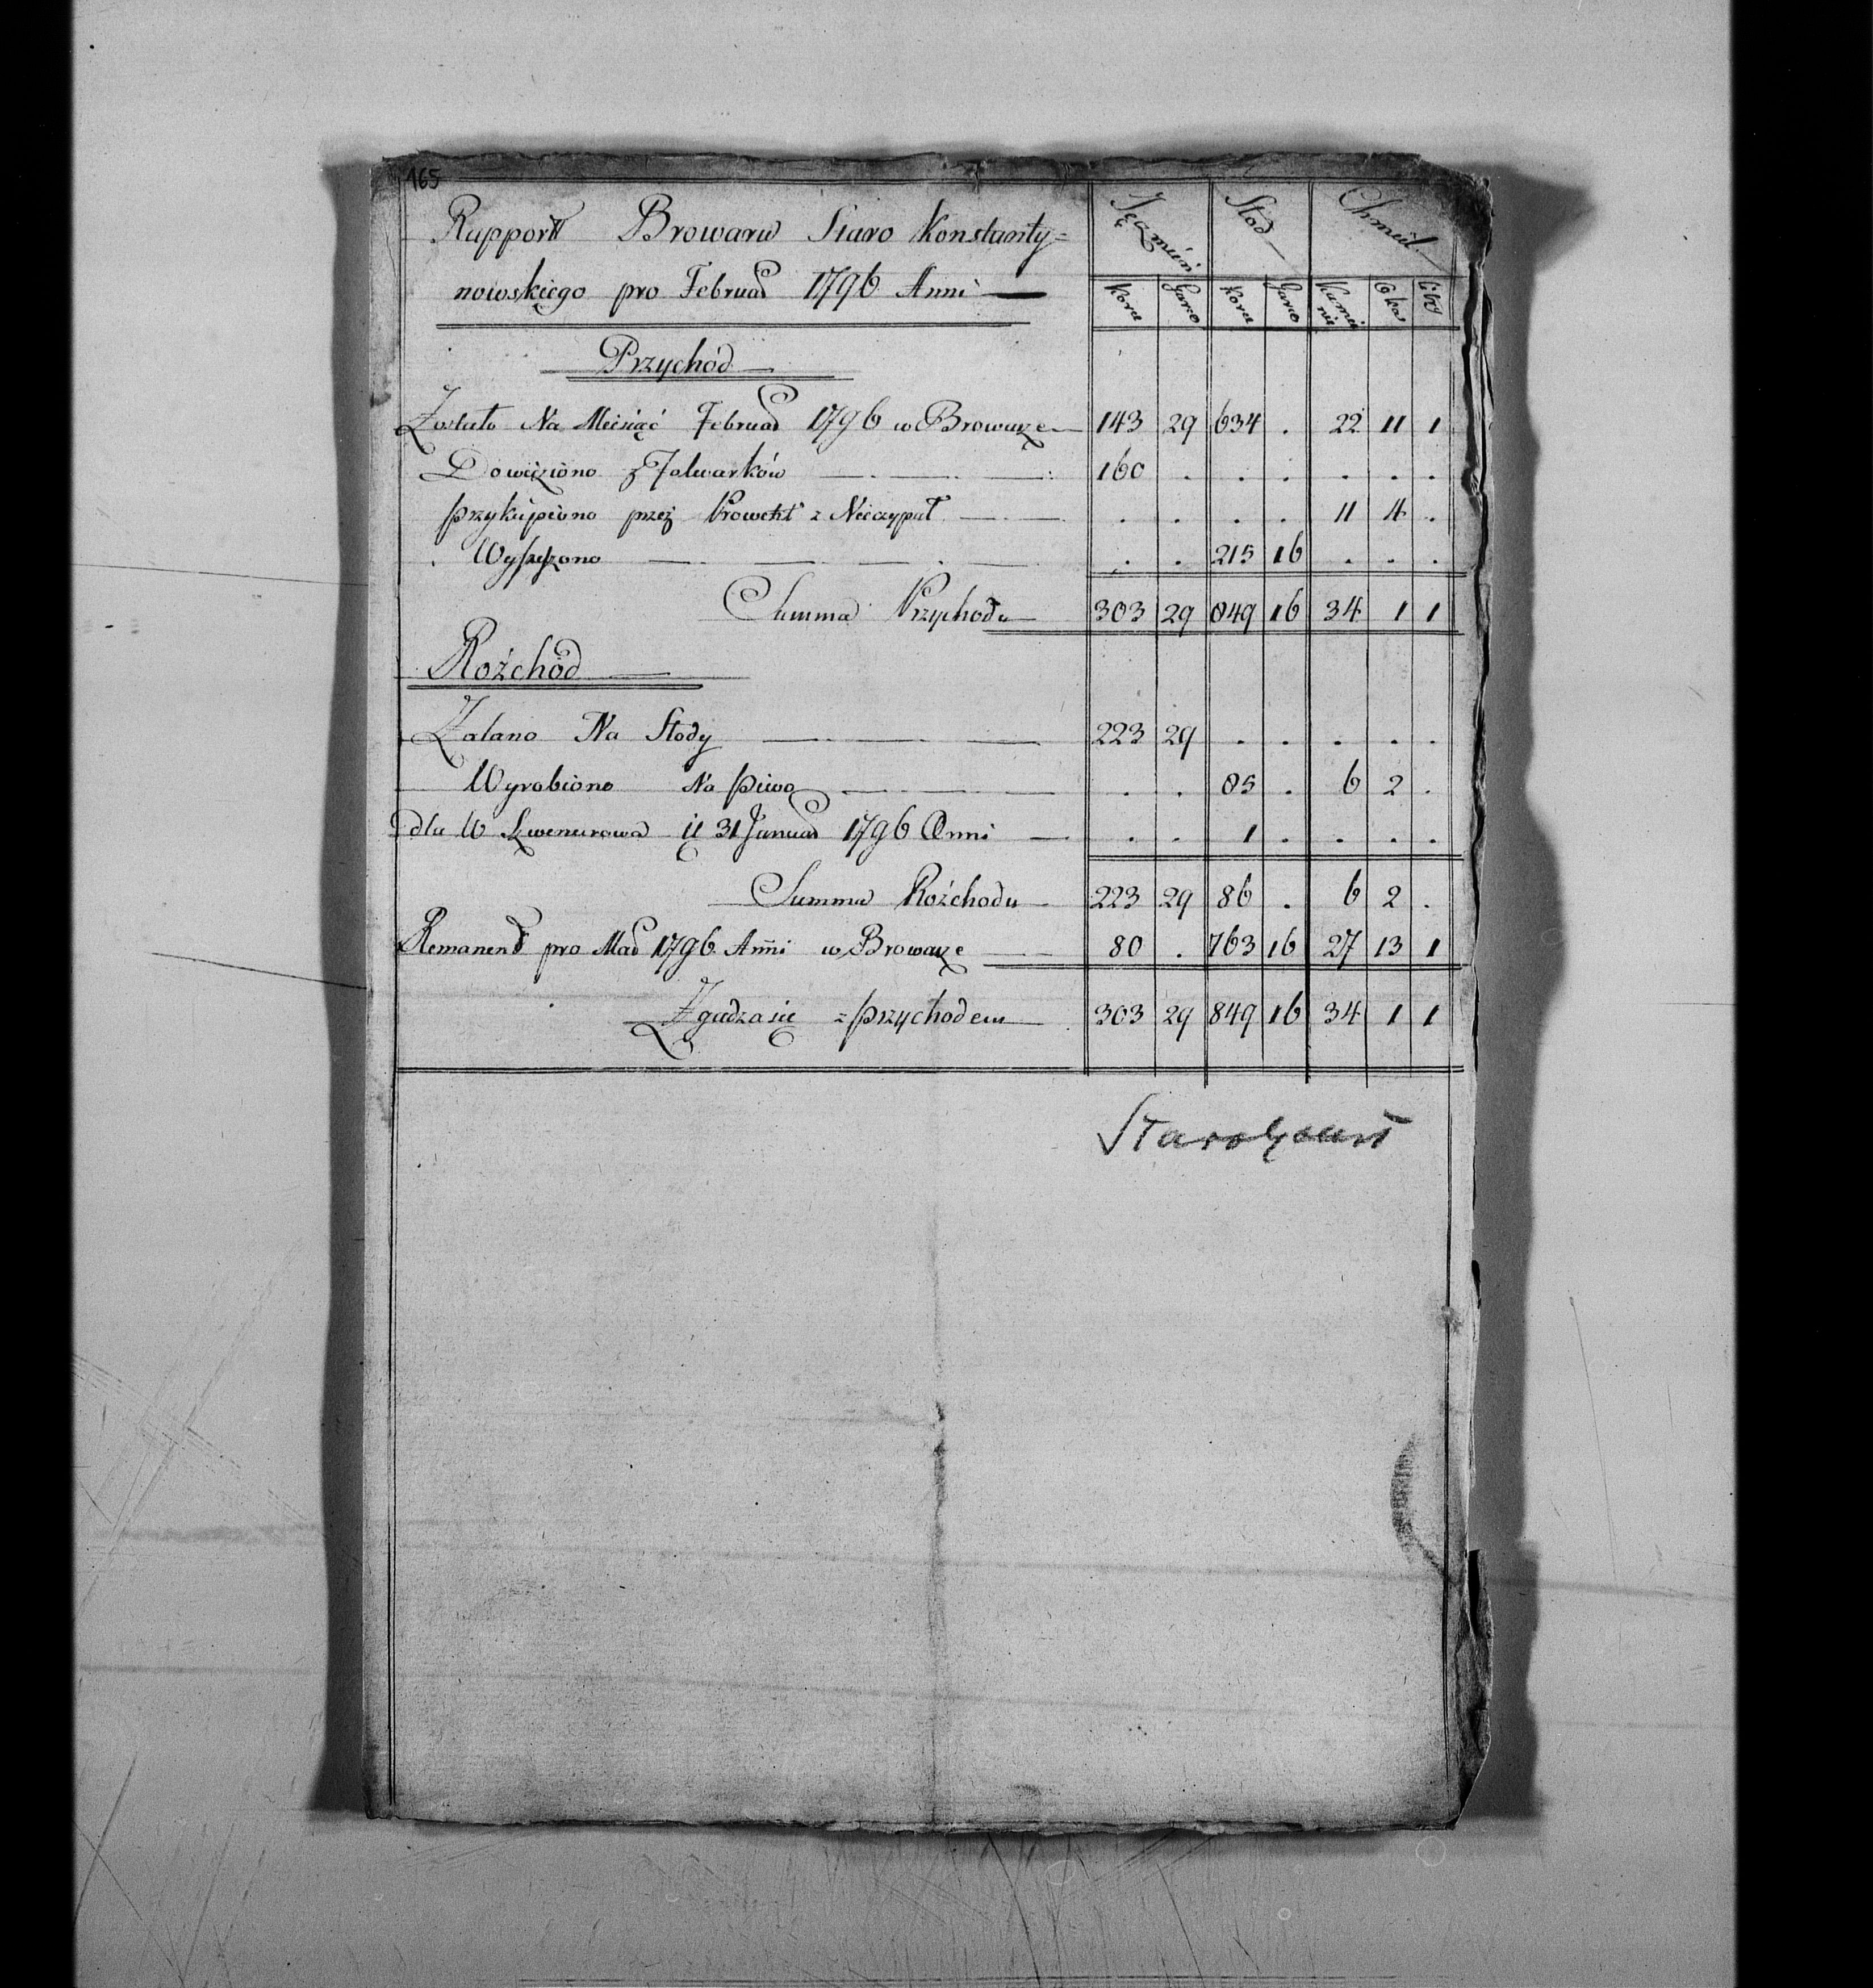 165
Rapport Browaru Staro Konstanty=
nowskiego pro Februar 1796 Anni
Jęczmień Słod Chmiel
Korce Garce Korce Garce Kamienie Oka Litry
Przychód
Zostało Na Miesiąć Februar 1796 w Browarze 143 29 634 . 22 11 1
Dowieziono z Folwarków 160 . . . . . .
przykupiono przez Prowent z Niczypał . . . . 11 4 .
Wyszyzono . . 215 16 . . .
Summa Przychodu 303 29 849 16 34 1 1
Rożchód
Zalano Na Słody 223 29 . . . . .
Wyrobiono Na piwo . . 85 . 6 2 .
dla W 31 Januar 1796 Anni . . 1 . . . .
Summa Rożchodu 223 29 86 . 6 2 .
Remanent pro Mar 1796 Anni w Browarze 80 . 763 16 27 13 1
Zgadza sie z przychodem 303 29 849 16 34 1 1